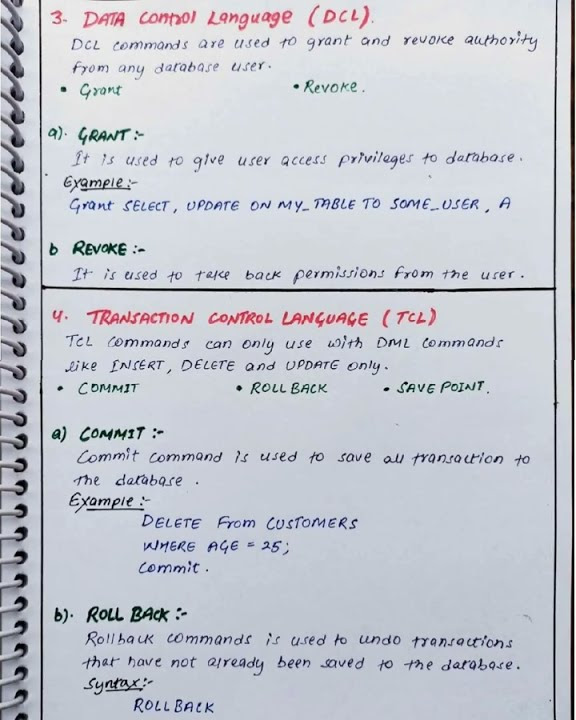 3. DATA Control Language (DCL).
DCL commands are used to grant and revoke authority
from any database user.
• Grant • Revoke.
a). GRANT :-
It is used to give user access privileges to database.
Example :-
Grant SELECT, UPDATE ON MY_TABLE TO SOME_USER, A
b REVOKE :-
It is used to take back permissions from the user.
4. TRANSACTION CONTROL LANGUAGE (TCL)
TCL commands can only use with DML commands
like INSERT, DELETE and UPDATE only.
• COMMIT • ROLL BACK • SAVE POINT.
a) COMMIT :-
Commit command is used to save all transaction to
the database .
Example :-
DELETE From CUSTOMERS
WHERE AGE = 25;
Commit .
b). ROLL BACK :-
Rollback commands is used to undo transactions
that have not already been saved to the database.
Syntax :-
ROLLBACK